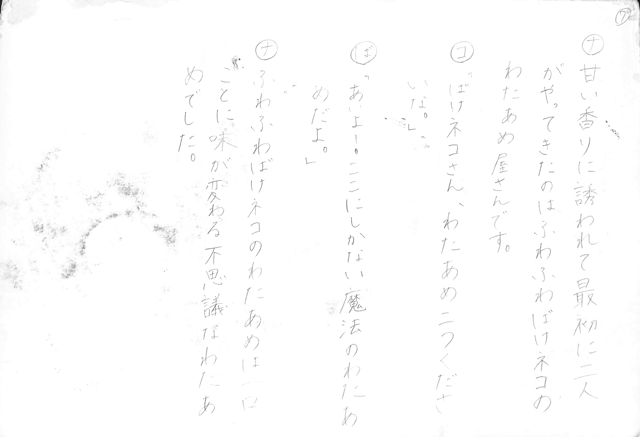 ⑦
ナ 甘い香りに誘われて最初に二人
がやってきたのはふわふわばけネコの
わたあめ屋さんです。
コ 「ばけネコさん、わたあめ二つくださ
いな。」
ば 「あいよー。ここにしかない魔法のわたあ
めだよ。」
ナ ふわふわばけネコのわたあめは一口
ごとに味が変わる不思議なわたあ
めでした。